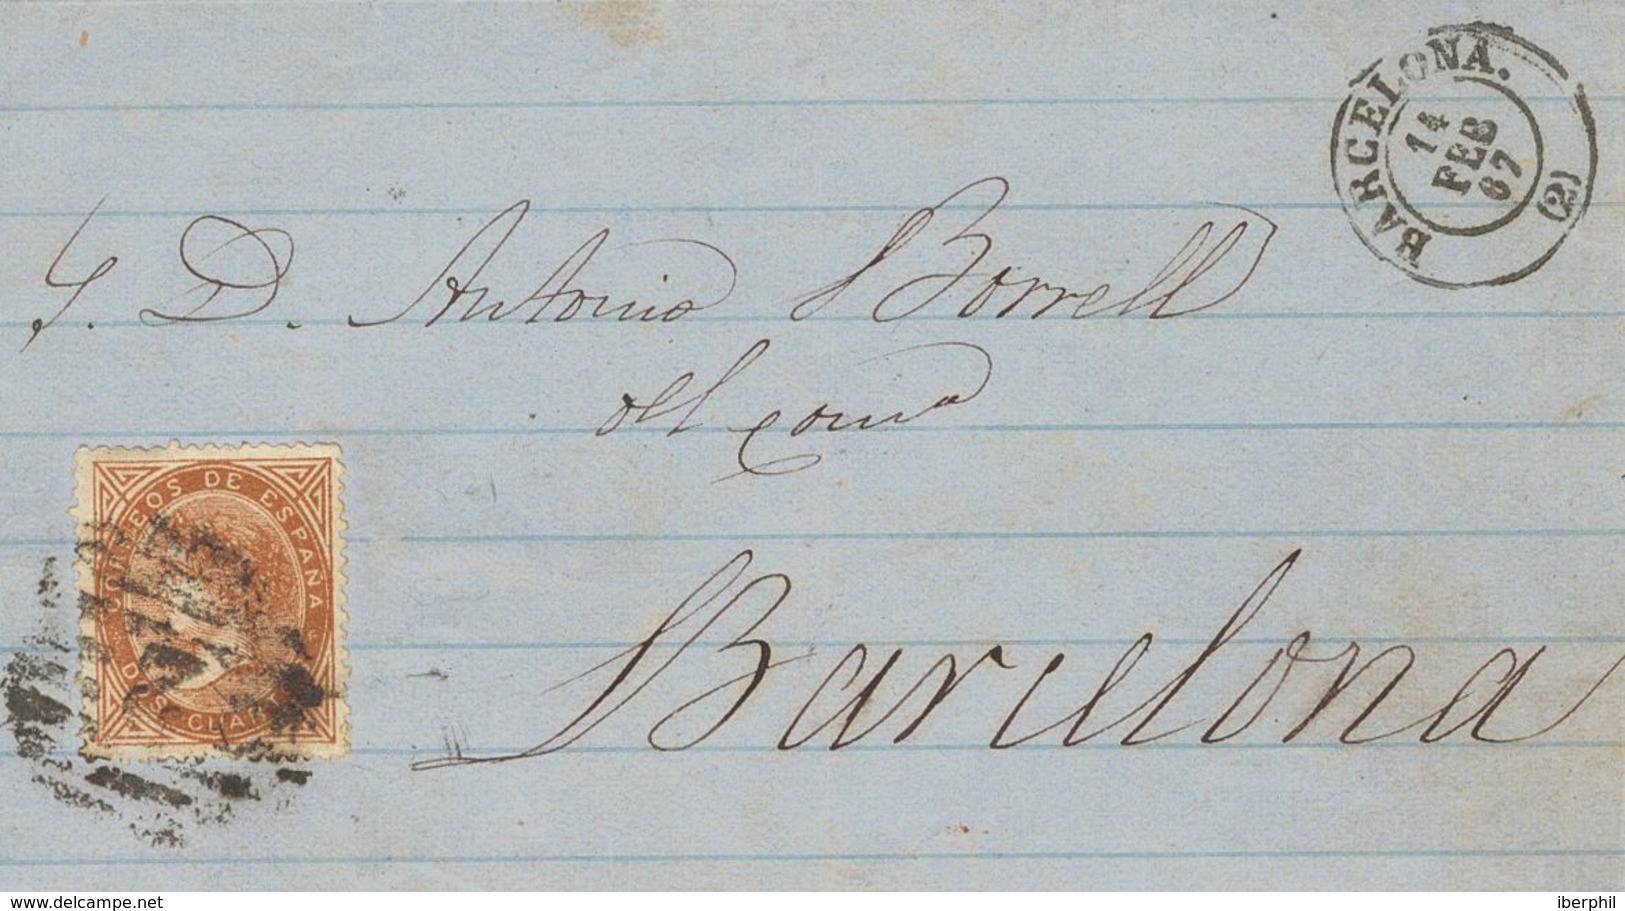 BARCELONA.
14
FEB
67
(2)
S. D. Antonio Borrell
del Com.º
Barcelona
CORREOS DE ESPAÑA
DOS CUAR
delcampe.net
iberphil